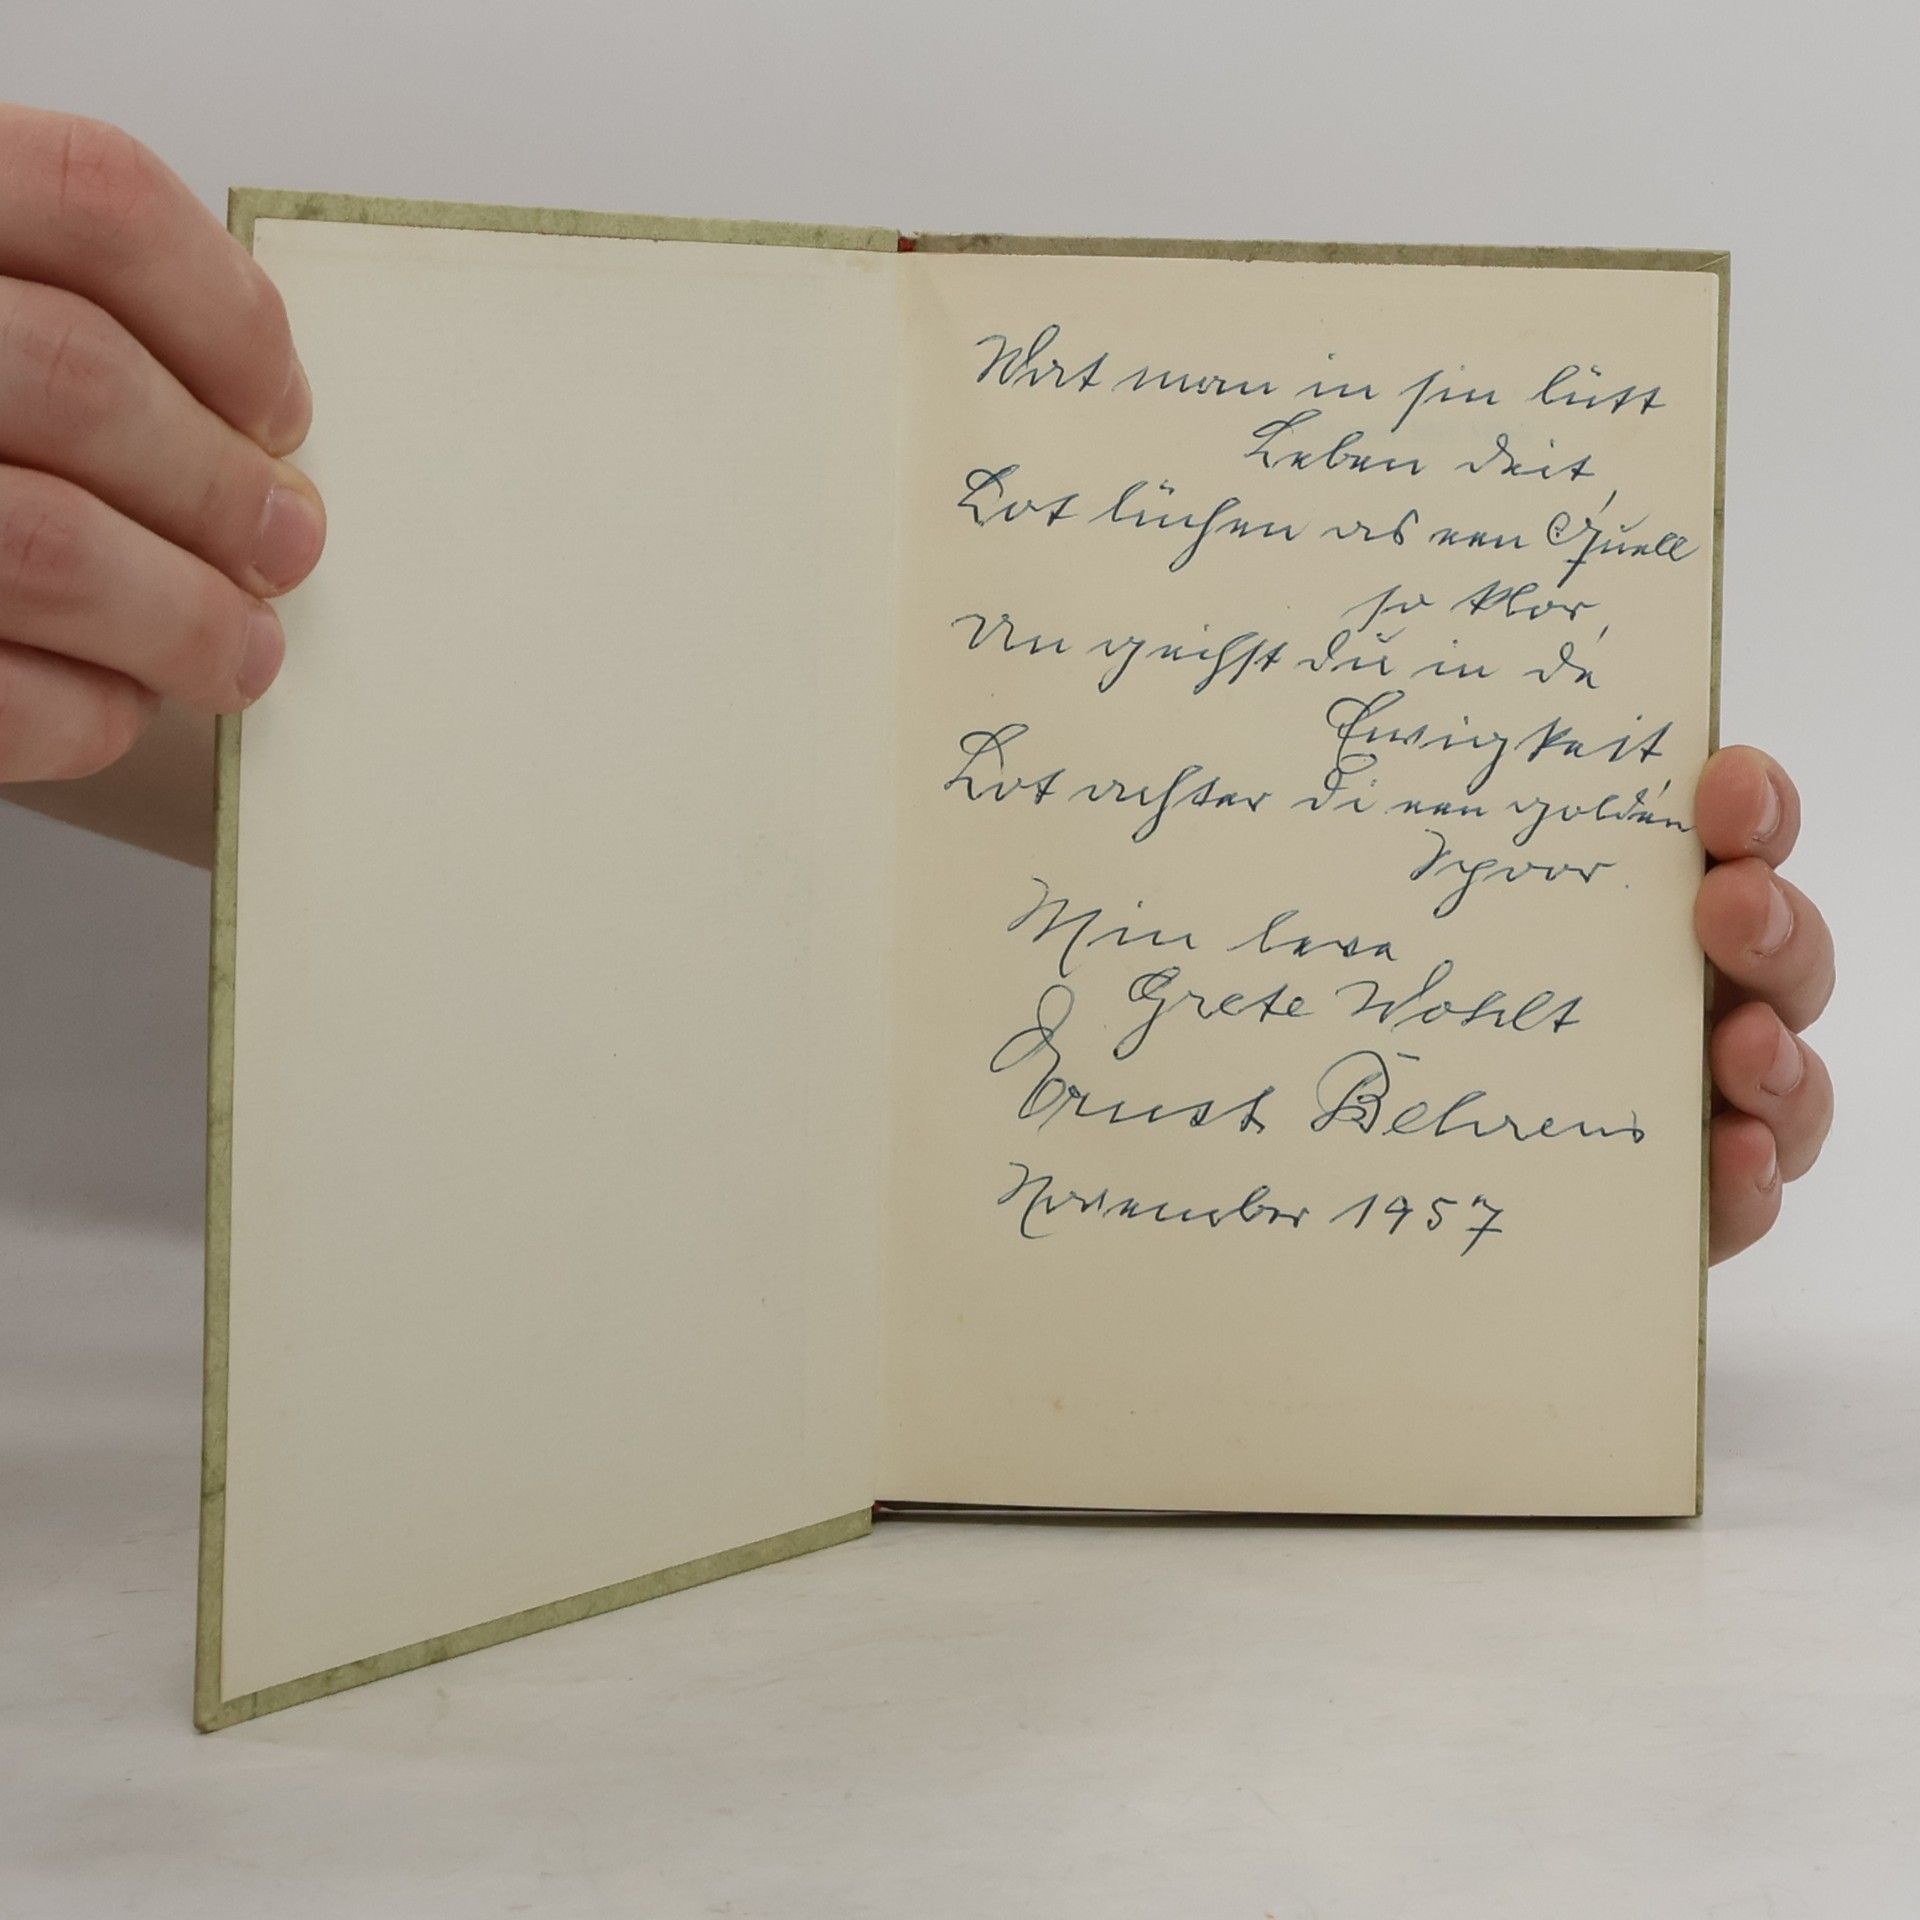 Wat man in sin lütt
Leben deit,
Lot lüchen as een Quell
so klor,
Un geihst du in de
Ewigkeit,
Lot achter di een golden
Spoor.
Min leve
Grete Wohlt
Ernst Behrens
November 1957